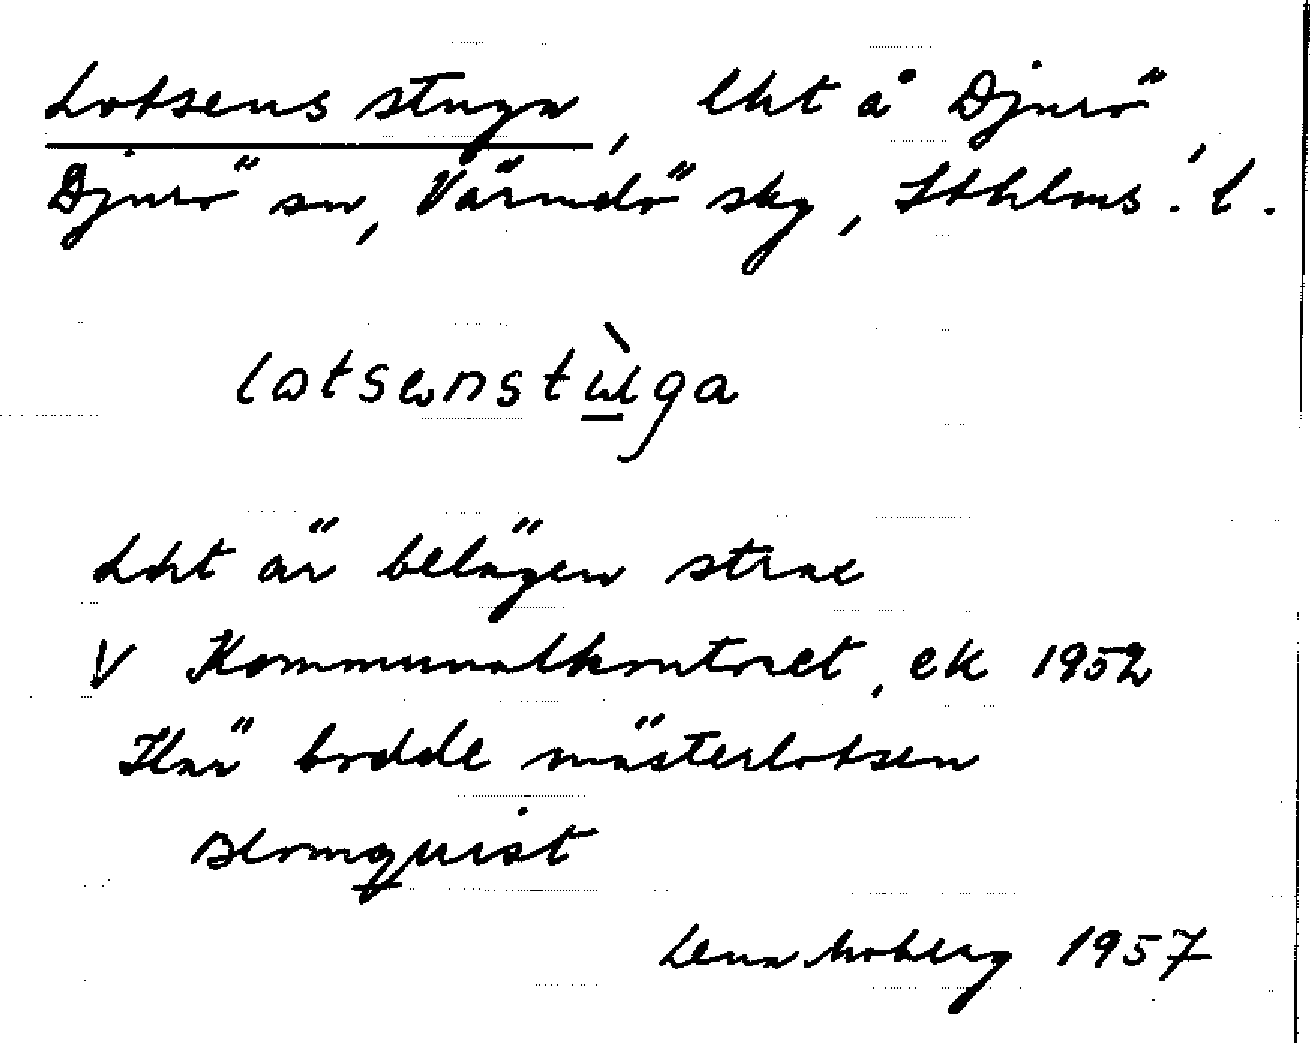 Lotsens stuga, lht å Djurö,
Djurö sn, Värmdö skg, Sthlms l.
lotsenstùga
Lht är belägen strax
V Kommunalkontoret, ek 1952
Här bodde mästerlotsen
Blomquist
Lena Moberg 1957